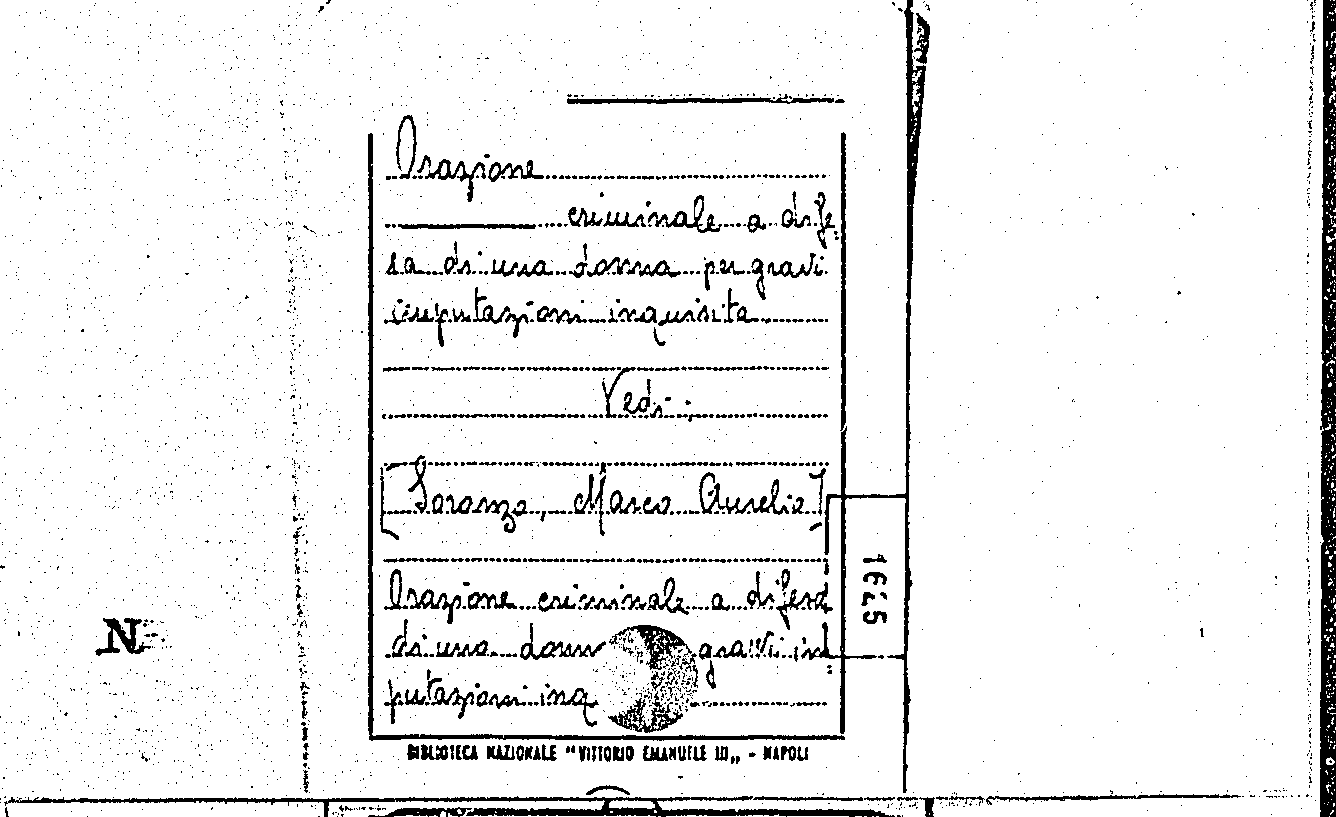 Orazione
criminale a dife-
sa di una donna per gravi
imputazioni inquisita
Vedi:
[Soranzo, Marco Aurelio]
Orazione criminale a difesa
di una donn gravi im-
putazioni inq
BIBLIOTECA NAZIONALE "VITTORIO EMANUELE III„ - NAPOLI
N